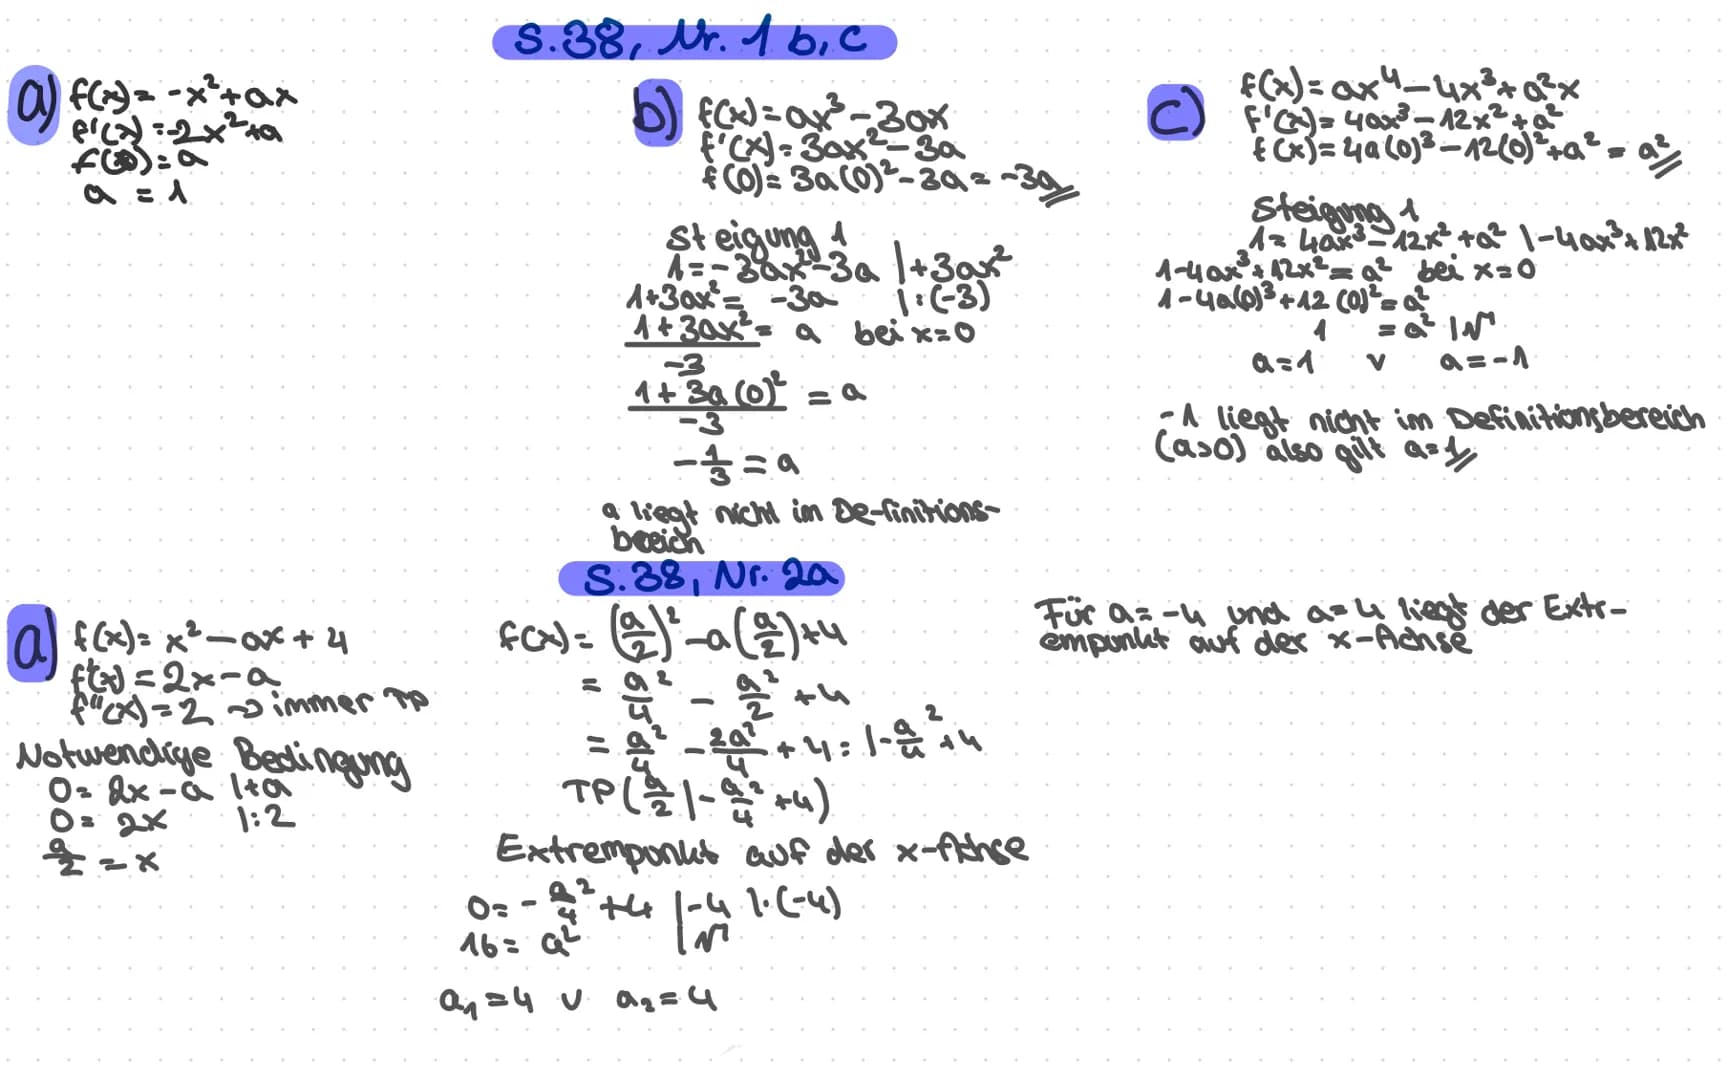 S.38, Nr. 1 b, c
a) f(x) = -x² + ax
f'(x) = -2x² + a
f(0) = a
a = 1
b) f(x) = ax³ - 3ax
f'(x) = 3ax² - 3a
f(0) = 3a(0)² - 3a = -3a
Steigung 1
1 = -3ax² - 3a | +3ax²
1 + 3ax² = -3a | : (-3)
(1 + 3ax²)/-3 = a bei x = 0
(1 + 3a(0)²)/-3 = a
-1/3 = a
a liegt nicht im Definitions-
bereich
c) f(x) = ax⁴ - 4x³ + a²x
f'(x) = 4ax³ - 12x² + a²
f(x) = 4a(0)³ - 12(0)² + a² = a²
Steigung 1
1 = 4ax³ - 12x² + a² | -4ax³ + 12x²
1 - 4ax³ + 12x² = a² bei x = 0
1 - 4a(0)³ + 12(0)² = a²
1 = a² | √
a = 1 v a = -1
-1 liegt nicht im Definitionsbereich
(a>0) also gilt a = 1
S.38, Nr. 2a
a) f(x) = x² - ax + 4
f'(x) = 2x - a
f''(x) = 2 → immer TP
Notwendige Bedingung
0 = 2x - a | +a
0 = 2x | : 2
a/2 = x
f(x) = (a/2)² - a(a/2) + 4
= a²/4 - a²/2 + 4
= a²/4 - 2a²/4 + 4 = |-a²/4 + 4
TP (a/2 | -a²/4 + 4)
Extrempunkt auf der x-Achse
0 = -a²/4 + 4 | -4 | · (-4)
16 = a² | √
a₁ = 4 v a₂ = 4
Für a = -4 und a = 4 liegt der Extr-
empunkt auf der x-Achse